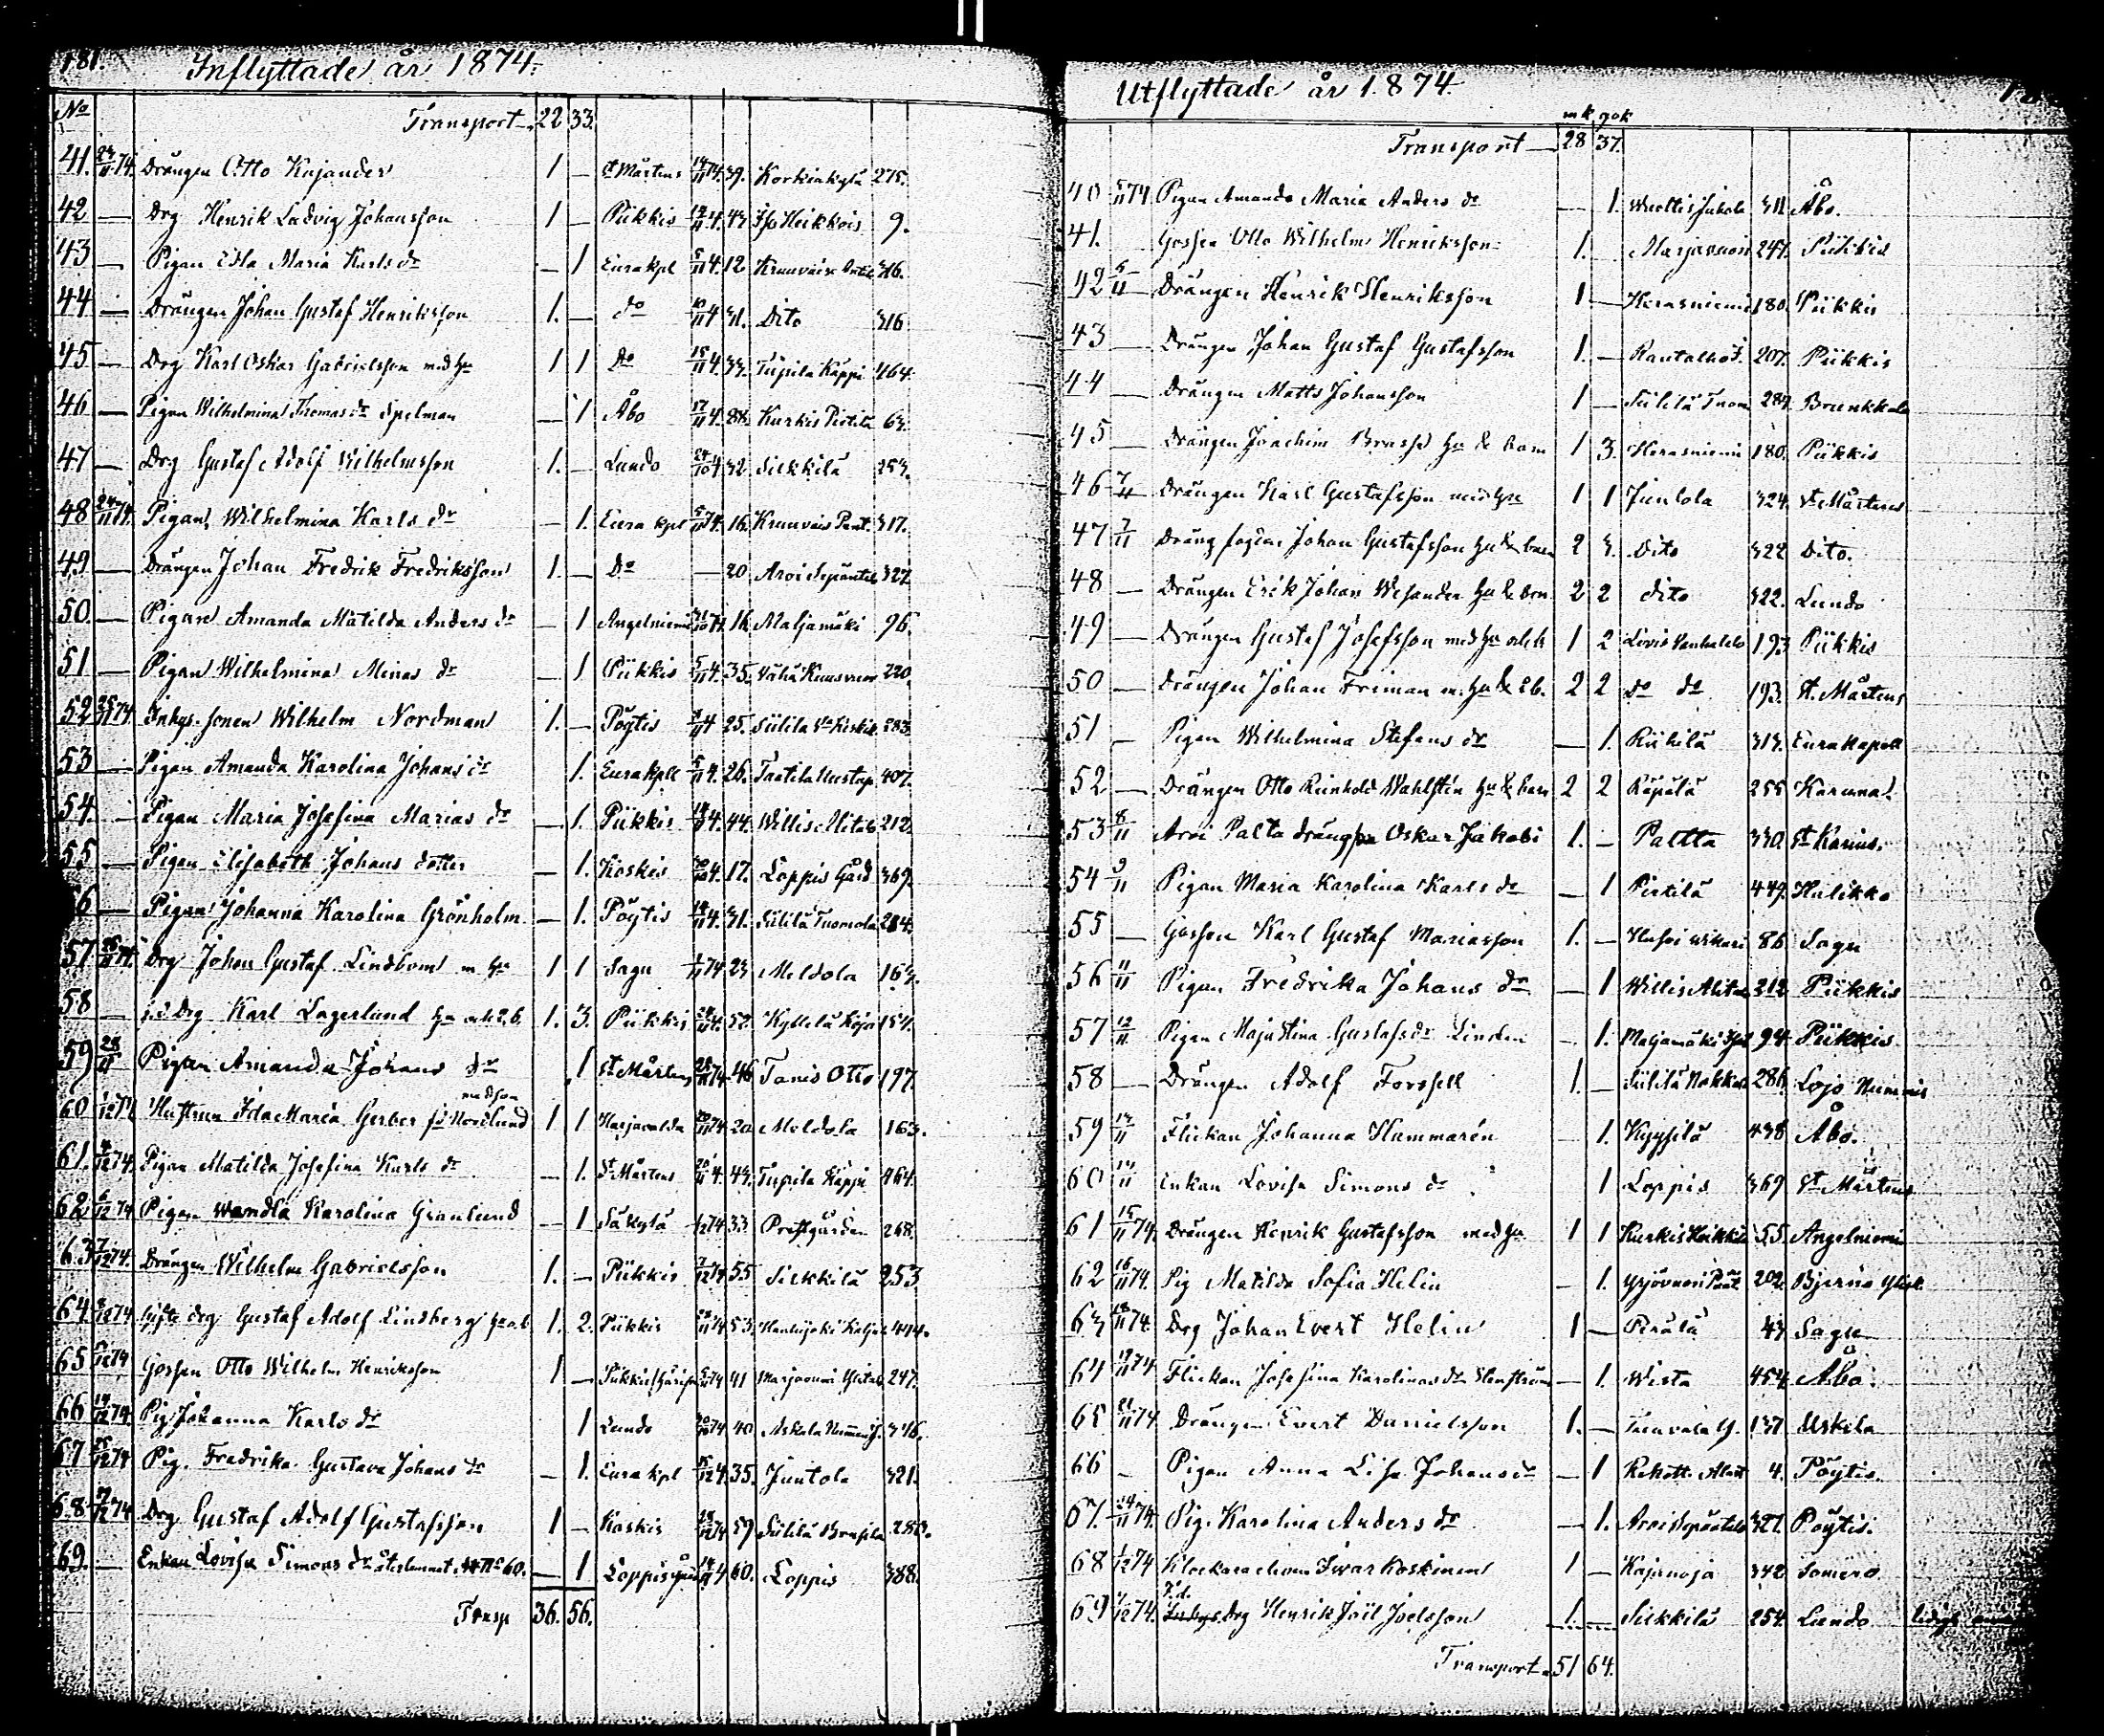 181.
Inflyttade år 1874.
No
Transport 22 33.
41. 24/11 74. Drängen Otto Kajander 1 — St Mårtens 14/11 74. 39. Korkiakylä 275.
42 — Drg Henrik Ludvig Johansson 1 — Piikkis 12/11 4. 43 Heikkois 9.
43 — Pigan Edla Maria Karls dr — 1 Eura kpl 5/11 4. 12 316.
44 — Drängen Johan Gustaf Henriksson 1. — do 10/11 4 31. Dito 316
45 — Drg Karl Oskar Gabrielsson med hu 1 1 Do 15/11 4. 33. Tuipila Käppi 464.
46 — Pigan Wilhelmina Thomas dr Spelman — 1 Åbo 17/11 4. 88. Kurkis Pietilä 63.
47 — Drg Gustaf Adolf Wilhelmsson 1. — Lundo 24/10 4 32 Sickkilä 253.
48 24/11 74. Pigan Wilhelmina Karls dr — 1. Eura kpl 5/11 74. 16. Kruuvais Pent. 317.
49 — Drängen Johan Fredrik Fredriksson 1. — Do — 20 Aroi Sepäntalo 327.
50. — Pigan Amanda Matilda Anders dr — 1 Angelniemi 31/10 74. 16 Maljamäki 96.
51 — Pigan Wilhelmina Minas dr — 1 Piikkis 5/11 4. 35. Vähä Kuusvuori 220.
52 25/11 74. Inhys. sonen Wilhelm Nordman 1. — Pöytis 4 25. Siililä 283.
53 — Pigan Amanda Karolina Johans dr 1. Eura kpll 5/11 4. 26. Taatila Uustap. 407.
54. — Pigan Maria Josefina Marias dr — 1. Piikkis 4. 44. Willis Alitalo 212.
55 — Pigan Elisabeth Johans dotter — 1. Koskis 4. 17. Loppis Gård 369.
6 — Pigan Johanna Karolina Grönholm — 1. Pöytis 4. 31. Siililä Tuomola 284.
57 Drg Johan Gustaf Lindbom m hu 1 1 Sagu 74 23 Moldola 163.
58 — Drg Karl Lagerlund hu och 2 b. 1. 3. Piikkis 52. Kylletä 154.
59 28/11 Pigan Amanda Johans dr 1 St Mårtens 46 Tanis Otto 197.
med son
60 1/12 74 Hustrun Ida Maria Gerber fd Norlund 1 1 Harjavalda 74 20 Moldola 163.
61. 4/12 74. Pigan Matilda Josefina Karls dr — 1. St Mårtens 4. 43. Tuipila Käppi 464.
62 6/12 74 Pigan Wendla Karolina Granlund — 1 Säkylä 1/12 74 33 Prestgården 268.
63 7/12 74. Drängen Wilhelm Gabrielsson 1. — Piikkis 7/12 74 55 Sickkilä 253
64 8/12 74 Gifte drg Gustaf Adolf Lindberg 1. 2. Piikkis 53. 414.
65 12 74 Gossen Otto Wilhelm Henriksson 1 — Piikkis 74 41 Marjavuori 247.
66 14/12 74. Pig. Johanna Karls dr 1 Lundo 74 40 Askala 346.
67 12 74 Pig. Fredrika Gustava Johans dr — 1. Eura kpl 15/12 4. 35. Juntola 321.
68 12 74 Drg Gustaf Adolf Gustafsson 1 — Koskis 12 74 59 Siililä
69. — Enkan Lovisa Simons dr återkommit No 60. — 1 Loppis 4 60. Loppis 388.
Transp 36. 56.
Utflyttade år 1874.
mk qvk
Transport — 28 37.
40 5/11 74 Pigan Amanda Maria Anders dr — 1. Wuoltis Jakola 311 Åbo.
41. Gossen Otto Wilhelm Henriksson 1. Marjavuori 247. Piikkis
42 5/11 — Drängen Henrik Henriksson 1 — Herasniemi 180. Piikkis
43 — Drängen Johan Gustaf Gustafsson 1. — 207. Piikkis
44 — Drängen Matts Johansson 1 — Siililä Tuom 284. Brunkkala
45 — Drängen Joachim hu & barn 1 3. Herasniemi 180. Piikkis
46 7/11 Drängen Karl Gustafsson med hu 1 1 Juntola 324. St Mårtens
47 7/11 Drängfogden Johan Gustafsson hu & barn 2 3. Dito 322 Dito.
48 — Drängen Erik Johan Wesander hu & brn 2 2 dito 322. Lundo
49 — Drängen Gustaf Josefsson med hu och b 1 2 Livis Vanhatalo 193 Piikkis
50 — Drängen Johan Friman m. hu & 2 b. 2 2 do do 193. St. Mårtens
51 — Pigan Wilhelmina Stefans dr — 1. Riihilä 313. Eura kapell
52 — Drängen Otto Reinhold Wahlstén hu & barn 2 2 Räpälä 255 Karuna.
53 8/11 Aroi Palta drängen Oskar Jakobi 1. — Paltta 330. St Karins.
54 9/11 Pigan Maria Karolina Karls dr — 1 Pietilä 449. Halikko
55 — Gossen Karl Gustaf Mariasson 1. — 86 Sagu
56 11/11 Pigan Fredrika Johans dr — 1 Willis Alitalo 212 Piikkis
57 12/11 Pigan Maja Stina Gustafs dr Linden — 1. Maljamäki 94. Piikkis
58 — Drängen Adolf Forssell 1. — Siililä 286. Lojo Nummis
59 13/11 Flickan Johanna Hammarén — 1. Kyysilä 438 Åbo.
60 14/11 Enkan Lovisa Simons dr 1 Loppis 369 St Mårtens
61 15/11 74. Drängen Henrik Gustafsson med hu 1 1 Kurkis Heikkilä 55. Angelniemi
62 16/11 74. Pig Matilda Sofia Helin — 1. 202 Bjerno
63 18/11 74. Drg Johan Evert Helin 1 — Perälä 43 Sagu
64 19/11 74 Flickan Josefina Karolinas dr — 1. Wista 454 Åbo.
65 21/11 74 Drängen Evert Danielsson 1. — 137 Uskela
66 — Pigan Anna Lisa Johans dr — 1 4. Pöytis.
67. 24/11 74. Pig. Karolina Anders dr — 1. Aroi Sepäntalo 327. Pöytis.
68 1/12 74 Klockare eleven Ivar Koskinen 1 — Kajanoja 342 Somero
69 4/12 74. Drg Henrik Joil Joelsson 1. — Sickkilä 254. Lundo
Transport 51 64.